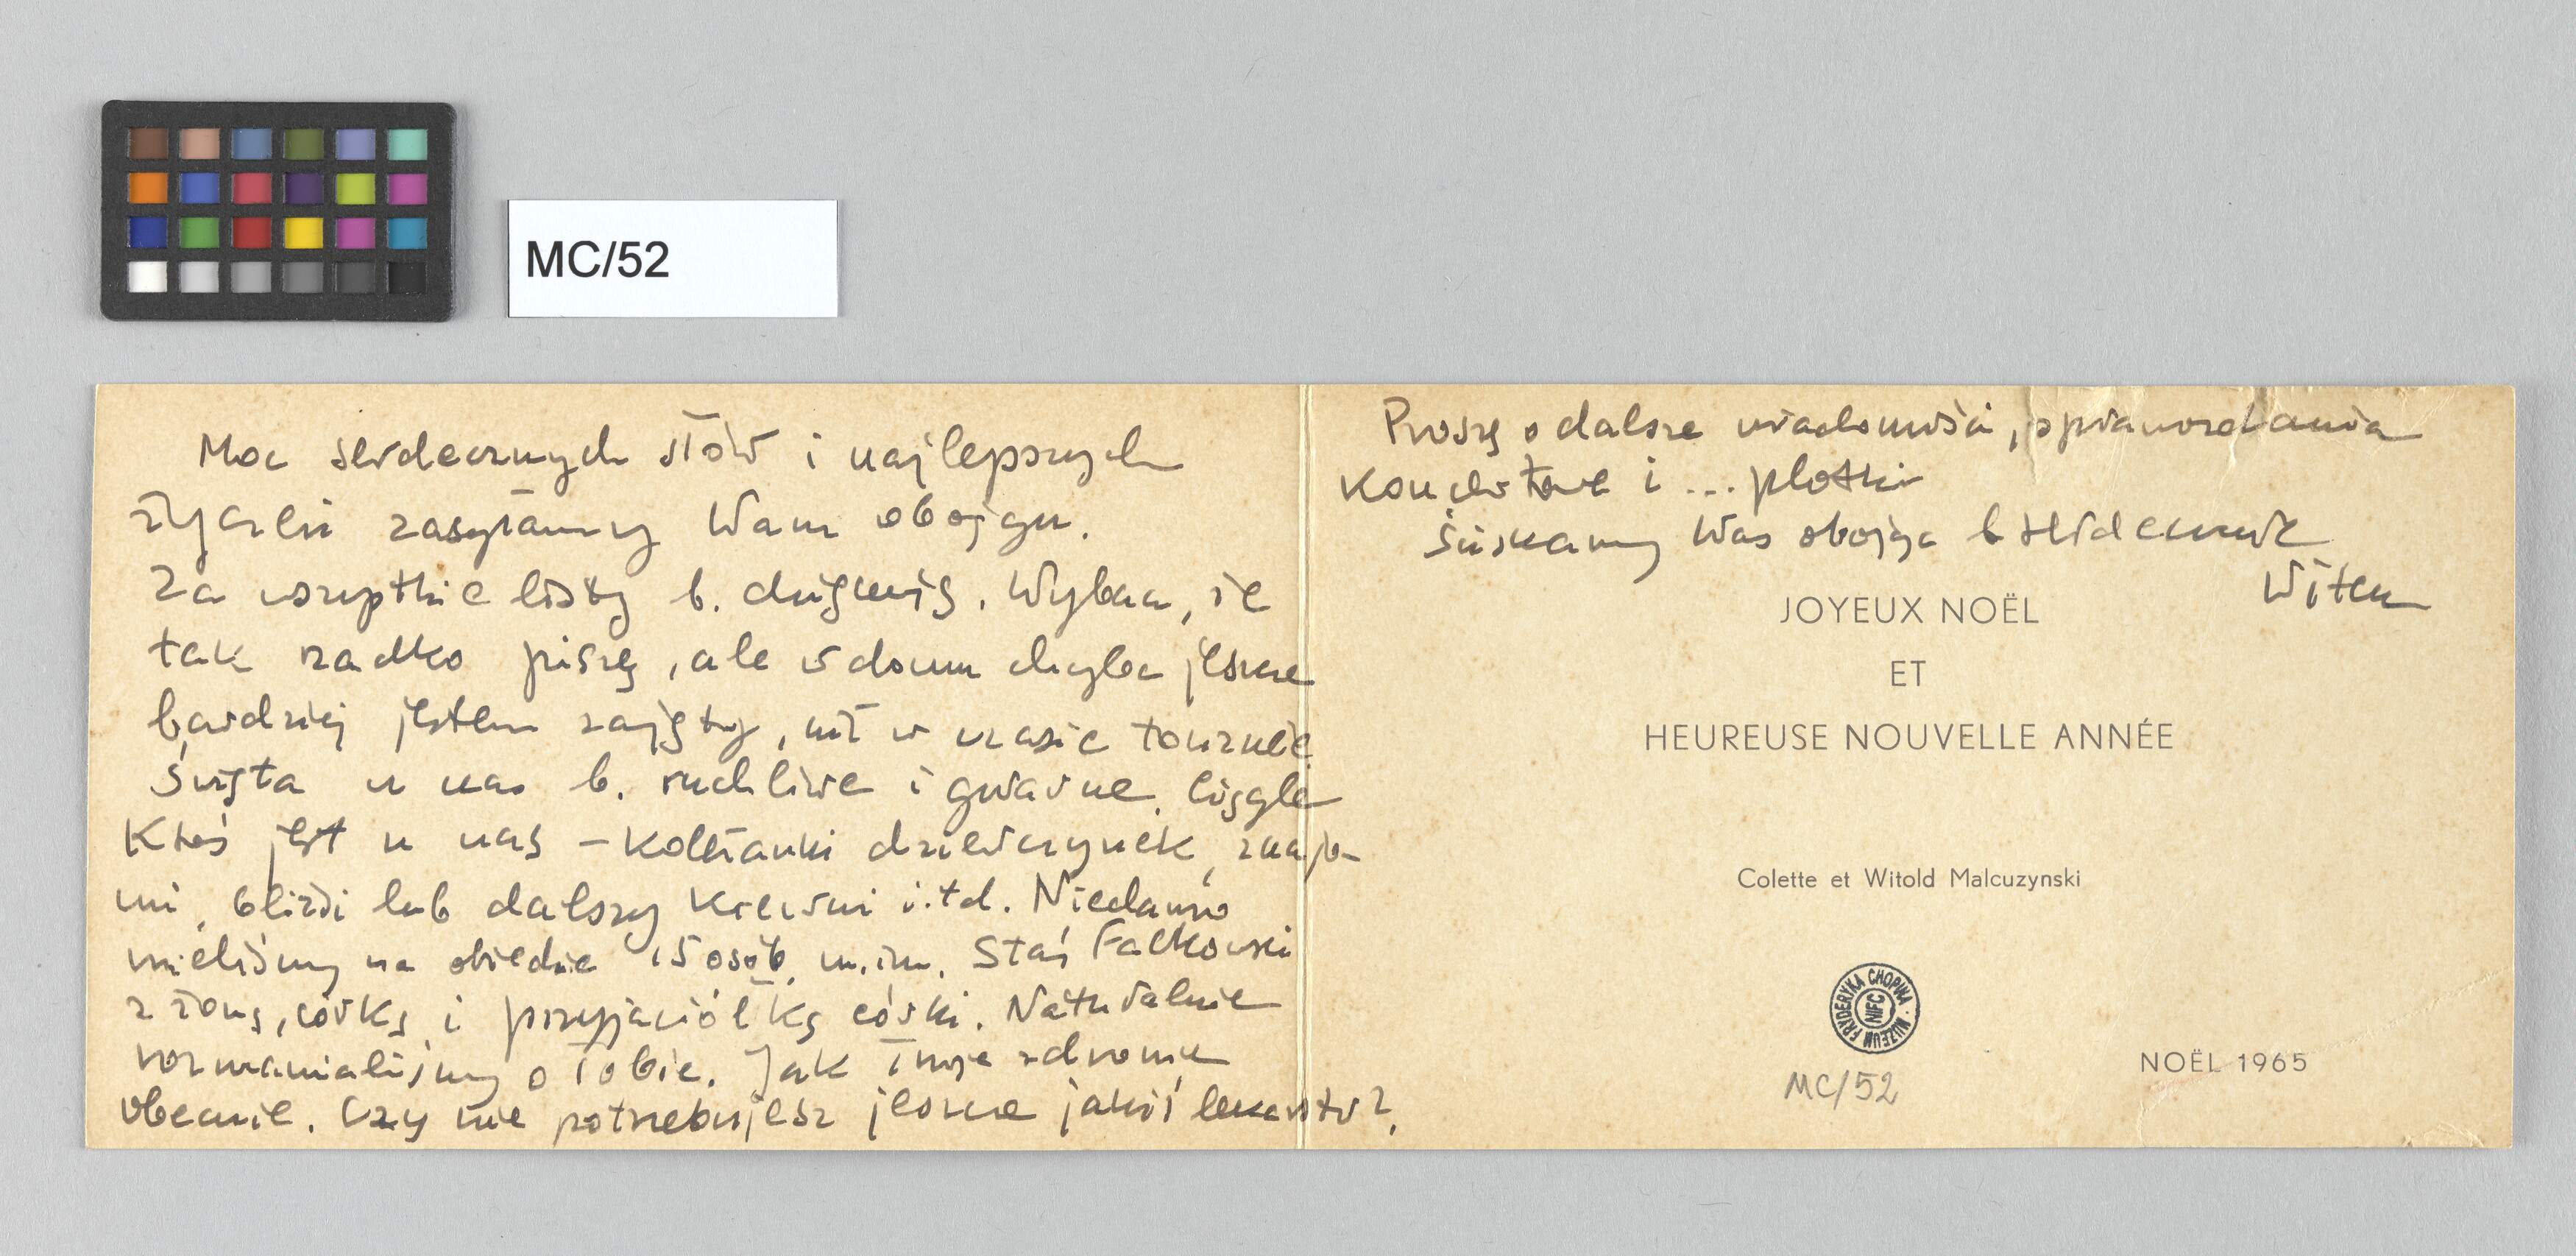 MC/52
Moc serdecznych słów i najlepszych
życzeń zasyłamy Wam obojgu.
Za wszystkie listy b. dziękuję. Wybacz, że
tak rzadko piszę, ale w domu chyba jeszcze
bardziej jestem zajęty, niż w czasie tournée.
Święta u nas b. ruchliwe i gwarne. Ciągle
Ktoś jest u nas – koleżanki dziewczynek, znajo-
mi, bliżsi lub dalszy krewni i.t.d. Niedawno
mieliśmy na obiedzie 15 osób, m.in. Staś Falkowski
z żoną, córką i przyjaciółką córki. Naturalnie
rozmawialiśmy o Tobie. Jak Twoje zdrowie
obecnie. Czy nie potrzebujesz jeszcze jakiś lekarstw?
Proszę o dalsze wiadomości, sprawozdania
koncertowe i ... plotki
Ściskamy Was oboje b serdecznie
Witek
JOYEUX NOËL
ET
HEUREUSE NOUVELLE ANNÉE
Colette et Witold Malcuzynski
MUZEUM FRYDERYKA CHOPINA
NIFC
NOËL 1965
MC/52